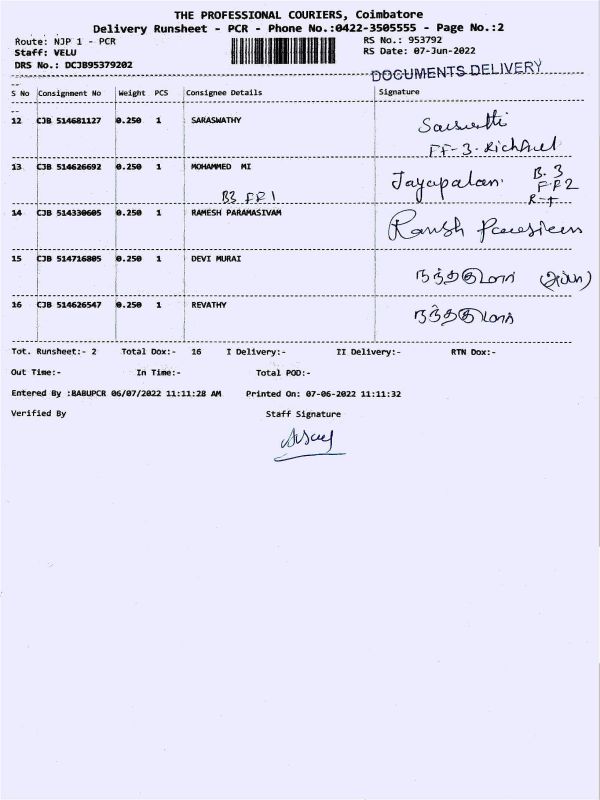 THE PROFESSIONAL COURIERS, Coimbatore
Delivery Runsheet - PCR - Phone No.:0422-3505555 - Page No.:2
Route: NJP 1 - PCR
RS No.: 953792
Staff: VELU
RS Date: 07-Jun-2022
DRS No.: DCJB95379202
DOCUMENTS DELIVERY
S No Consignment No Weight PCS Consignee Details Signature
12 CJB 514681127 0.250 1 SARASWATHY
FF-3-Richfuel
13 CJB 514626692 0.250 1 MOHAMMED MI Jayapalan B.3
FF2
B3 FF1
14 CJB 514330605 0.250 1 RAMESH PARAMASIVAM
15 CJB 514716805 0.250 1 DEVI MURAI நந்தகுமார் (அப்பா)
16 CJB 514626547 0.250 1 REVATHY நந்தகுமார்
Tot. Runsheet:- 2 Total Dox:- 16 I Delivery:- II Delivery:- RTN Dox:-
Out Time:- In Time:- Total POD:-
Entered By :BABUPCR 06/07/2022 11:11:28 AM Printed On: 07-06-2022 11:11:32
Verified By Staff Signature